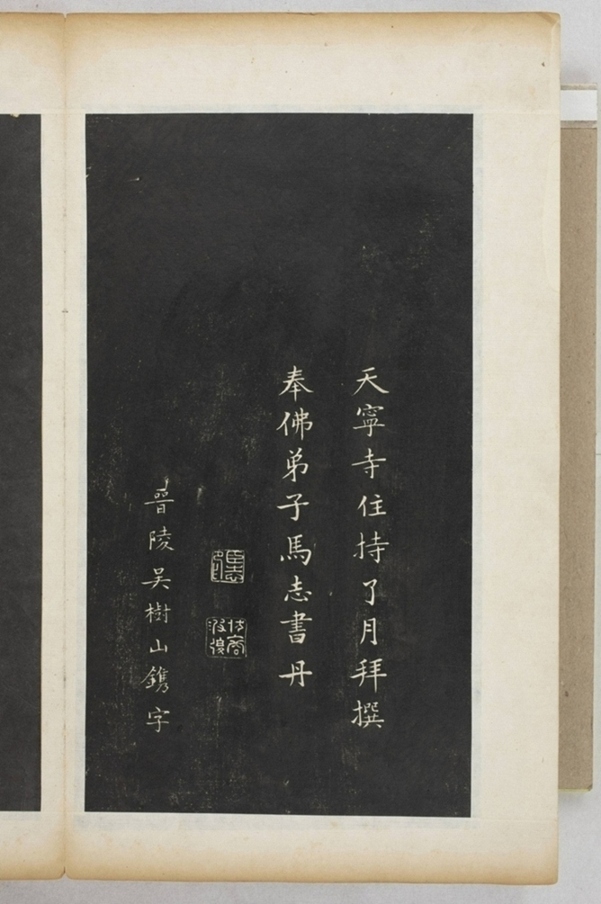 天寧寺住持了月拜撰
奉佛弟子馬志書丹
晉陵吳樹山鐫字